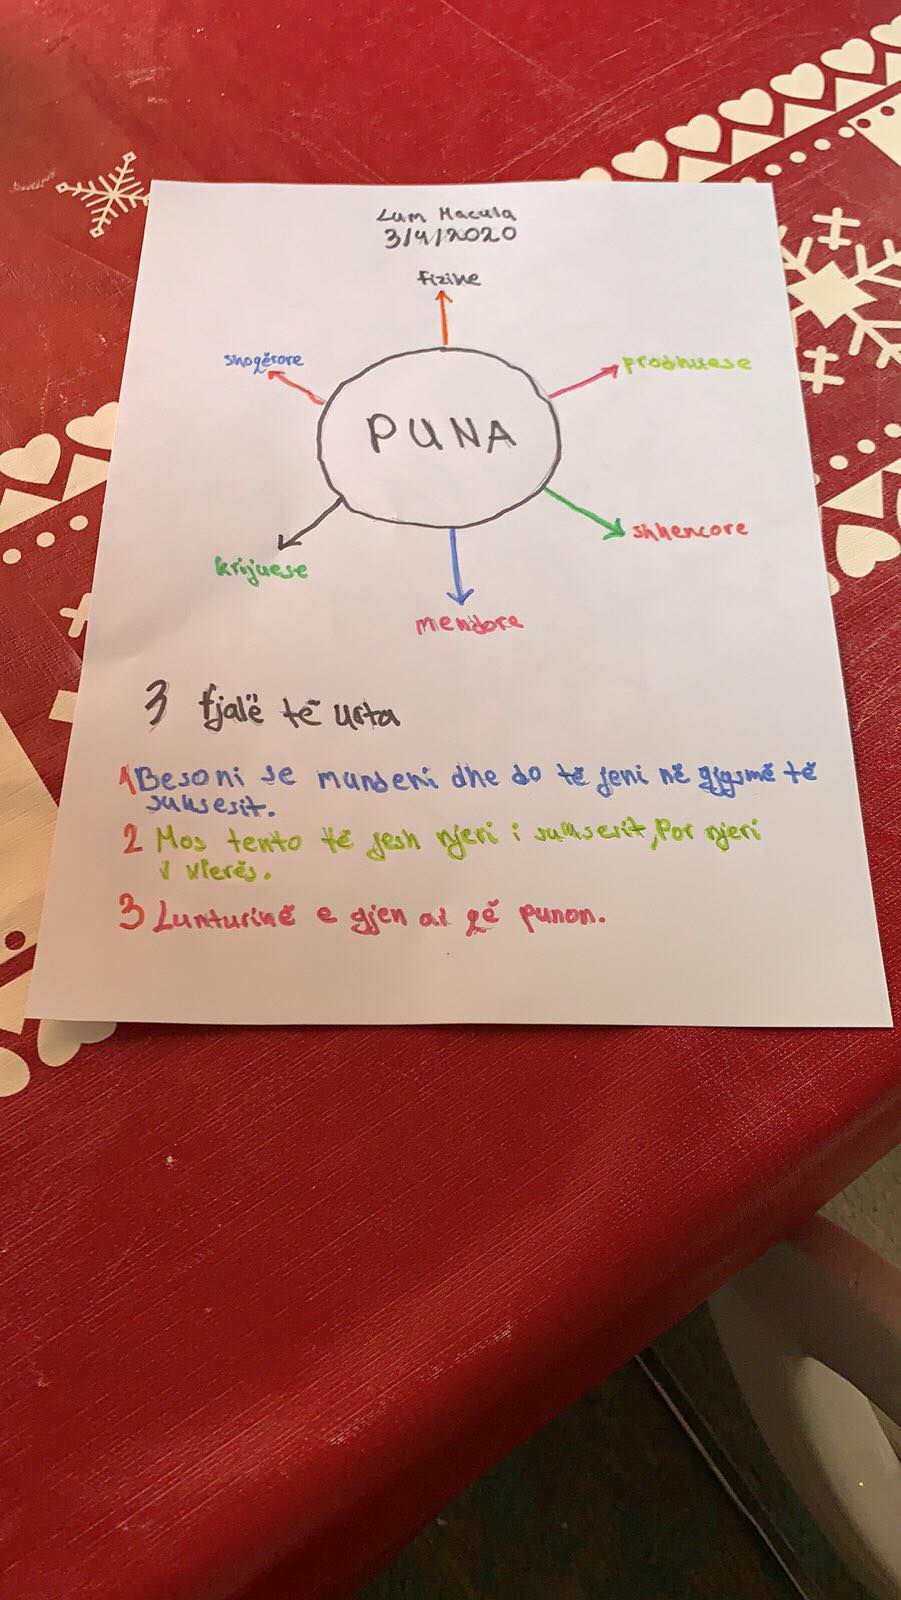 Lum Hacula
3/4/2020
fizike
shoqërore
prodhuese
PUNA
shkencore
krijuese
mendore
3 fjalë të urta
1 Besoni se mundeni dhe do të jeni në gjysmë të
suksesit.
2 Mos tento të jesh njeri i suksesit, Por njeri
i vlerës.
3 Lumturinë e gjen ai që punon.